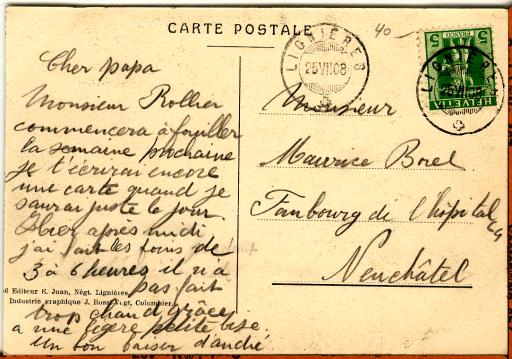 CARTE POSTALE
40
LIGNIÈRES
25 VII.08
5 FRANCO 5
HELVETIA
LIGNIÈRES
25 VII.08
Cher papa
Monsieur Rollier
commencera à fouiller
la semaine prochaine
je t'écrirai encore
une carte quand je
saurai juste le jour.
Hier après midi,
j'ai fait les foins de
3 à 6 heures, il n'a
pas fait
trop chaud, grâce
a une légère petite bise.
Un bon baiser d'andré
Editeur E. Juan, Négt. Lignières.
Industrie graphique J. Colombier.
Monsieur
Maurice Borel
Faubourg de l'hôpital
Neuchâtel